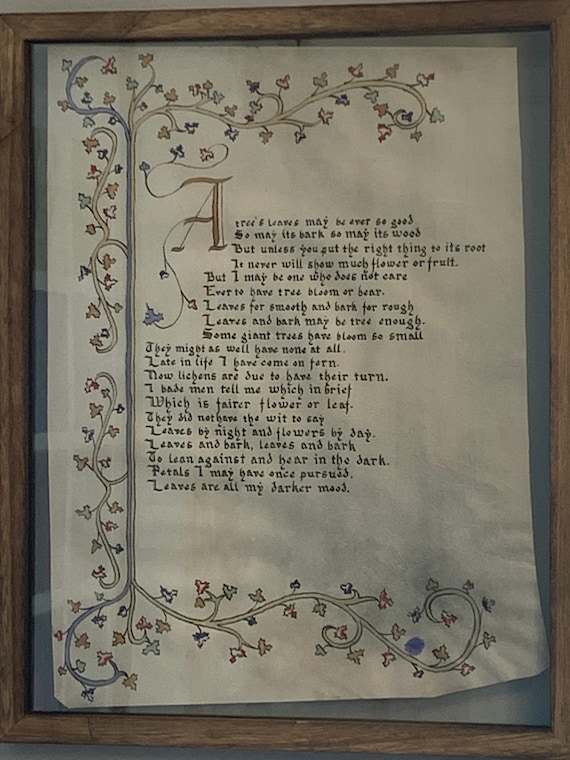 A tree's leaves may be ever so good
So may its bark so may its wood
But unless you put the right thing to its root
It never will show much flower or fruit.
But I may be one who does not care
Ever to have tree bloom or bear.
Leaves for smooth and bark for rough
Leaves and bark may be tree enough.
Some giant trees have bloom so small
They might as well have none at all.
Late in life I have come on fern.
Now lichens are due to have their turn.
I bade men tell me which in brief
Which is fairer flower or leaf.
They did not have the wit to say
Leaves by night and flowers by day.
Leaves and bark, leaves and bark
To lean against and hear in the dark.
Petals I may have once pursued.
Leaves are all my darker mood.